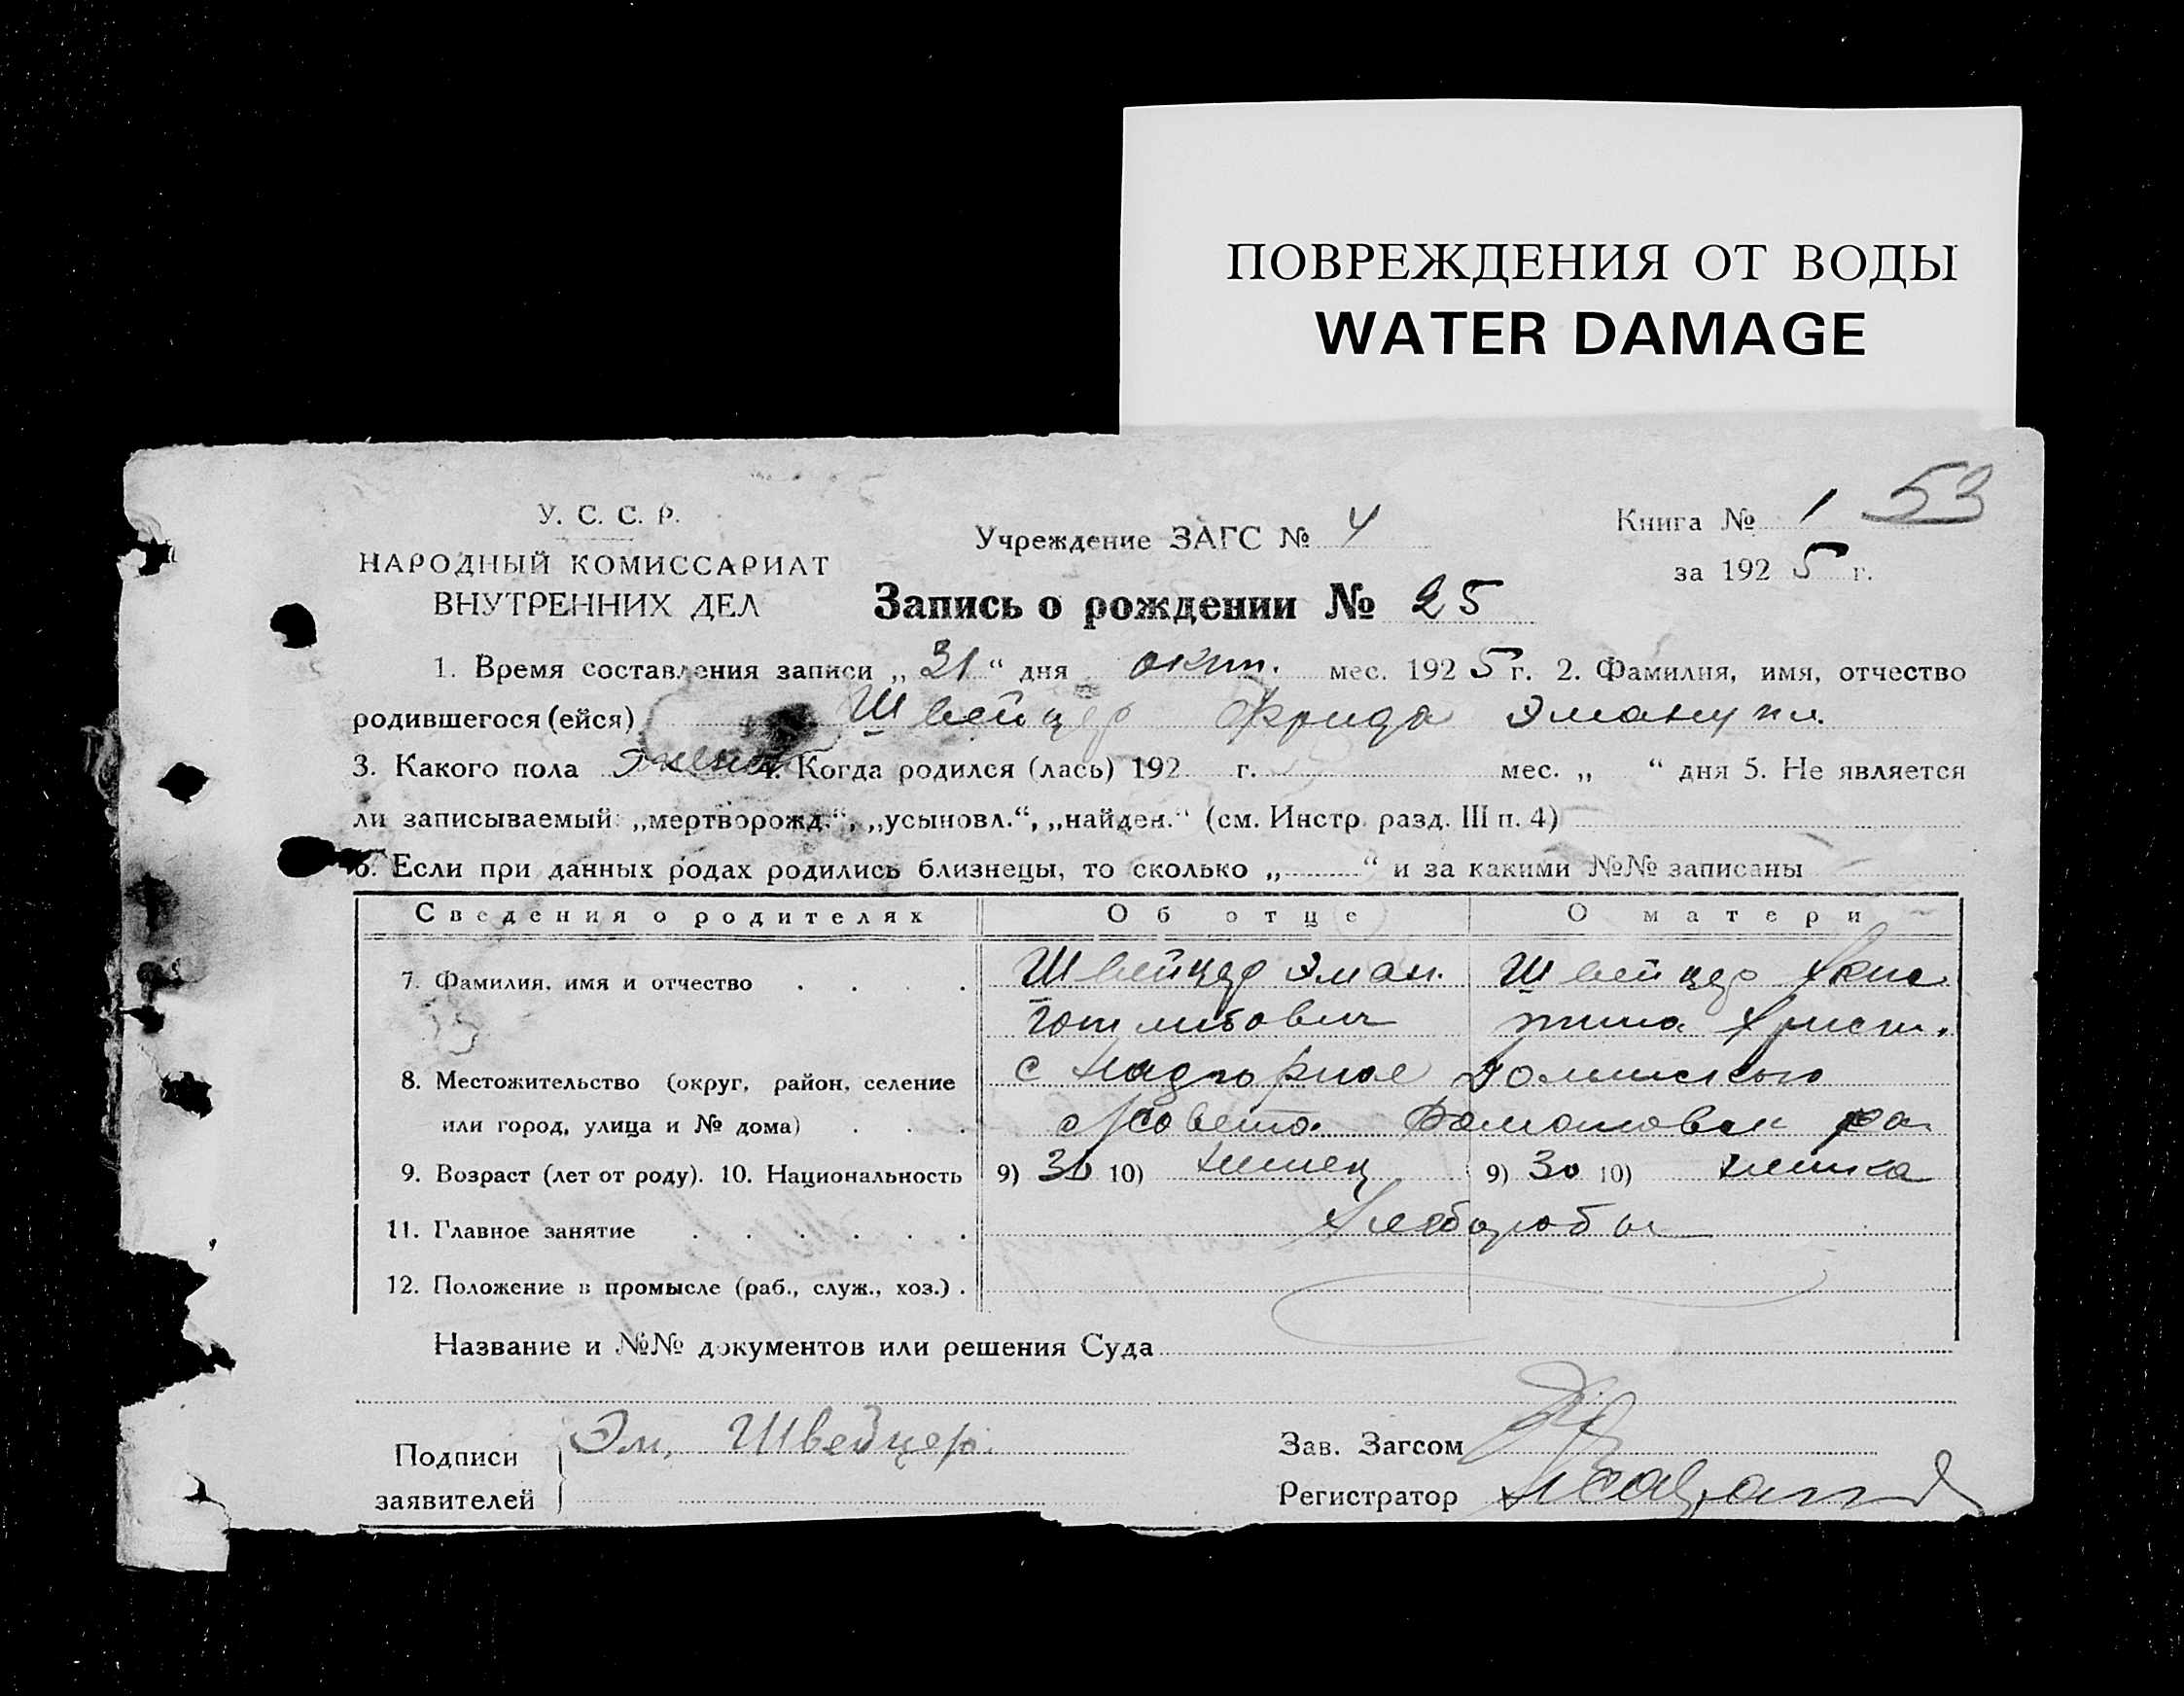 ПОВРЕЖДЕНИЯ ОТ ВОДЫ
WATER DAMAGE
53
У. С. С. Р.
НАРОДНЫЙ КОМИССАРИАТ
ВНУТРЕННИХ ДЕЛ
Учреждение ЗАГС № 4
Книга № 1
за 1925 г.
Запись о рождении № 25
1. Время составления записи „31“ дня окт. мес. 1925 г. 2. Фамилия, имя, отчество
родившегося (ейся) Швейцер Фрида Эмануил.
3. Какого пола женск 4. Когда родился (лась) 192 г. мес. „ “ дня 5. Не является
ли записываемый: „мертворожд.“, „усыновл.“, „найден.“ (см. Инстр. разд. III п. 4)
6. Если при данных родах родились близнецы, то сколько „ “ и за какими №№ записаны
Сведения о родителях Об отце О матери
7. Фамилия, имя и отчество . . . . Швейцер Эман. Готлибович Швейцер Христина Христ.
8. Местожительство (округ, район, селение с Надгорное
или город, улица и № дома) . . . с/совета
9. Возраст (лет от роду). 10. Национальность 9) 30 10) немец 9) 30 10) немка
11. Главное занятие . . . . . . Хлеборобы
12. Положение в промысле (раб., служ., хоз.) .
Название и №№ документов или решения Суда
Подписи
заявителей
Эм. Швейцер.
Зав. Загсом
Регистратор